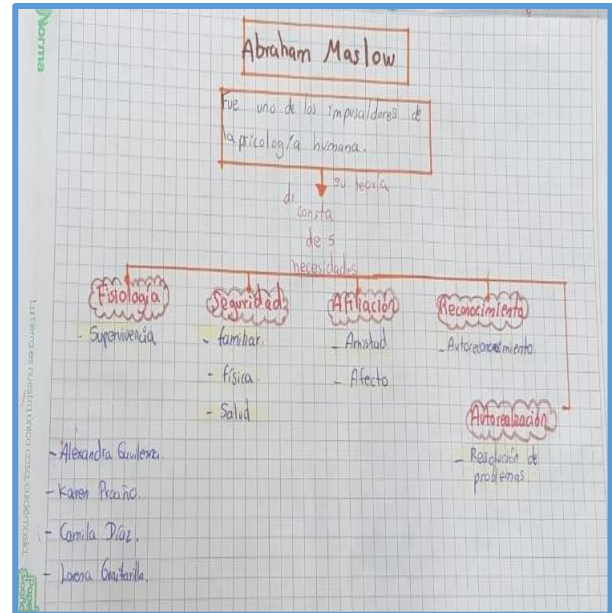 Norma
Abraham Maslow
Fue uno de los impusaldores de
la psicología humana.
su teoría
di
consta
de 5
necesidades
Fisiología
- Supervivencia
Seguridad
- familiar
- física.
- Salud
Afiliación
- Amistad
- Afecto
Reconocimiento
- Autoreconocimiento
Autorrealización
- Resolución de
problemas
- Alexandra
- Karen
- Camila Díaz.
- Lorena
La tierra es nuestra única casa, cuidémosla.